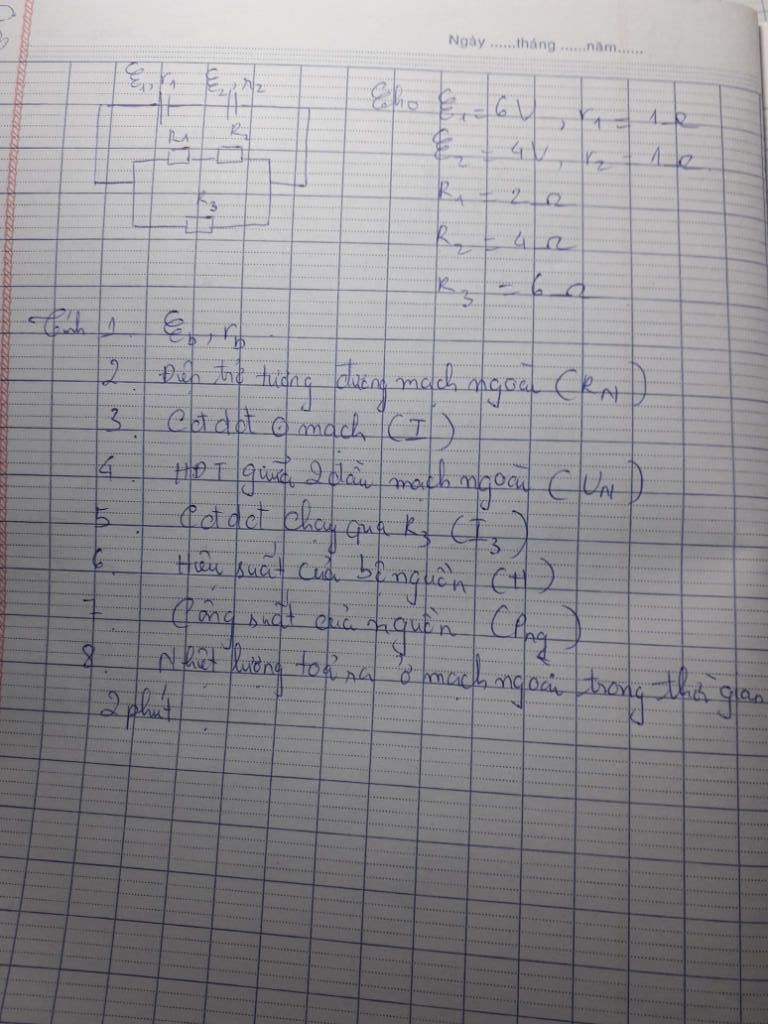 Ngày ......tháng ......năm......
ξ₁, r₁ ξ₂, r₂
R₁ R₂
R₃
Cho ξ₁ = 6V, r₁ = 1Ω
ξ₂ = 4V, r₂ = 1Ω
R₁ = 2Ω
R₂ = 4Ω
R₃ = 6Ω
Tính 1. ξb, rb
2. Điện trở tương đương mạch ngoài (RN)
3. Cđdđ ở mạch (I)
4. HĐT giữa 2 đầu mạch ngoài (UN)
5. Cđdđ chạy qua R₃ (I₃)
6. Hiệu suất của bộ nguồn (H)
7. Công suất của nguồn (Png)
8. Nhiệt lượng toả ra ở mạch ngoài trong thời gian
2 phút